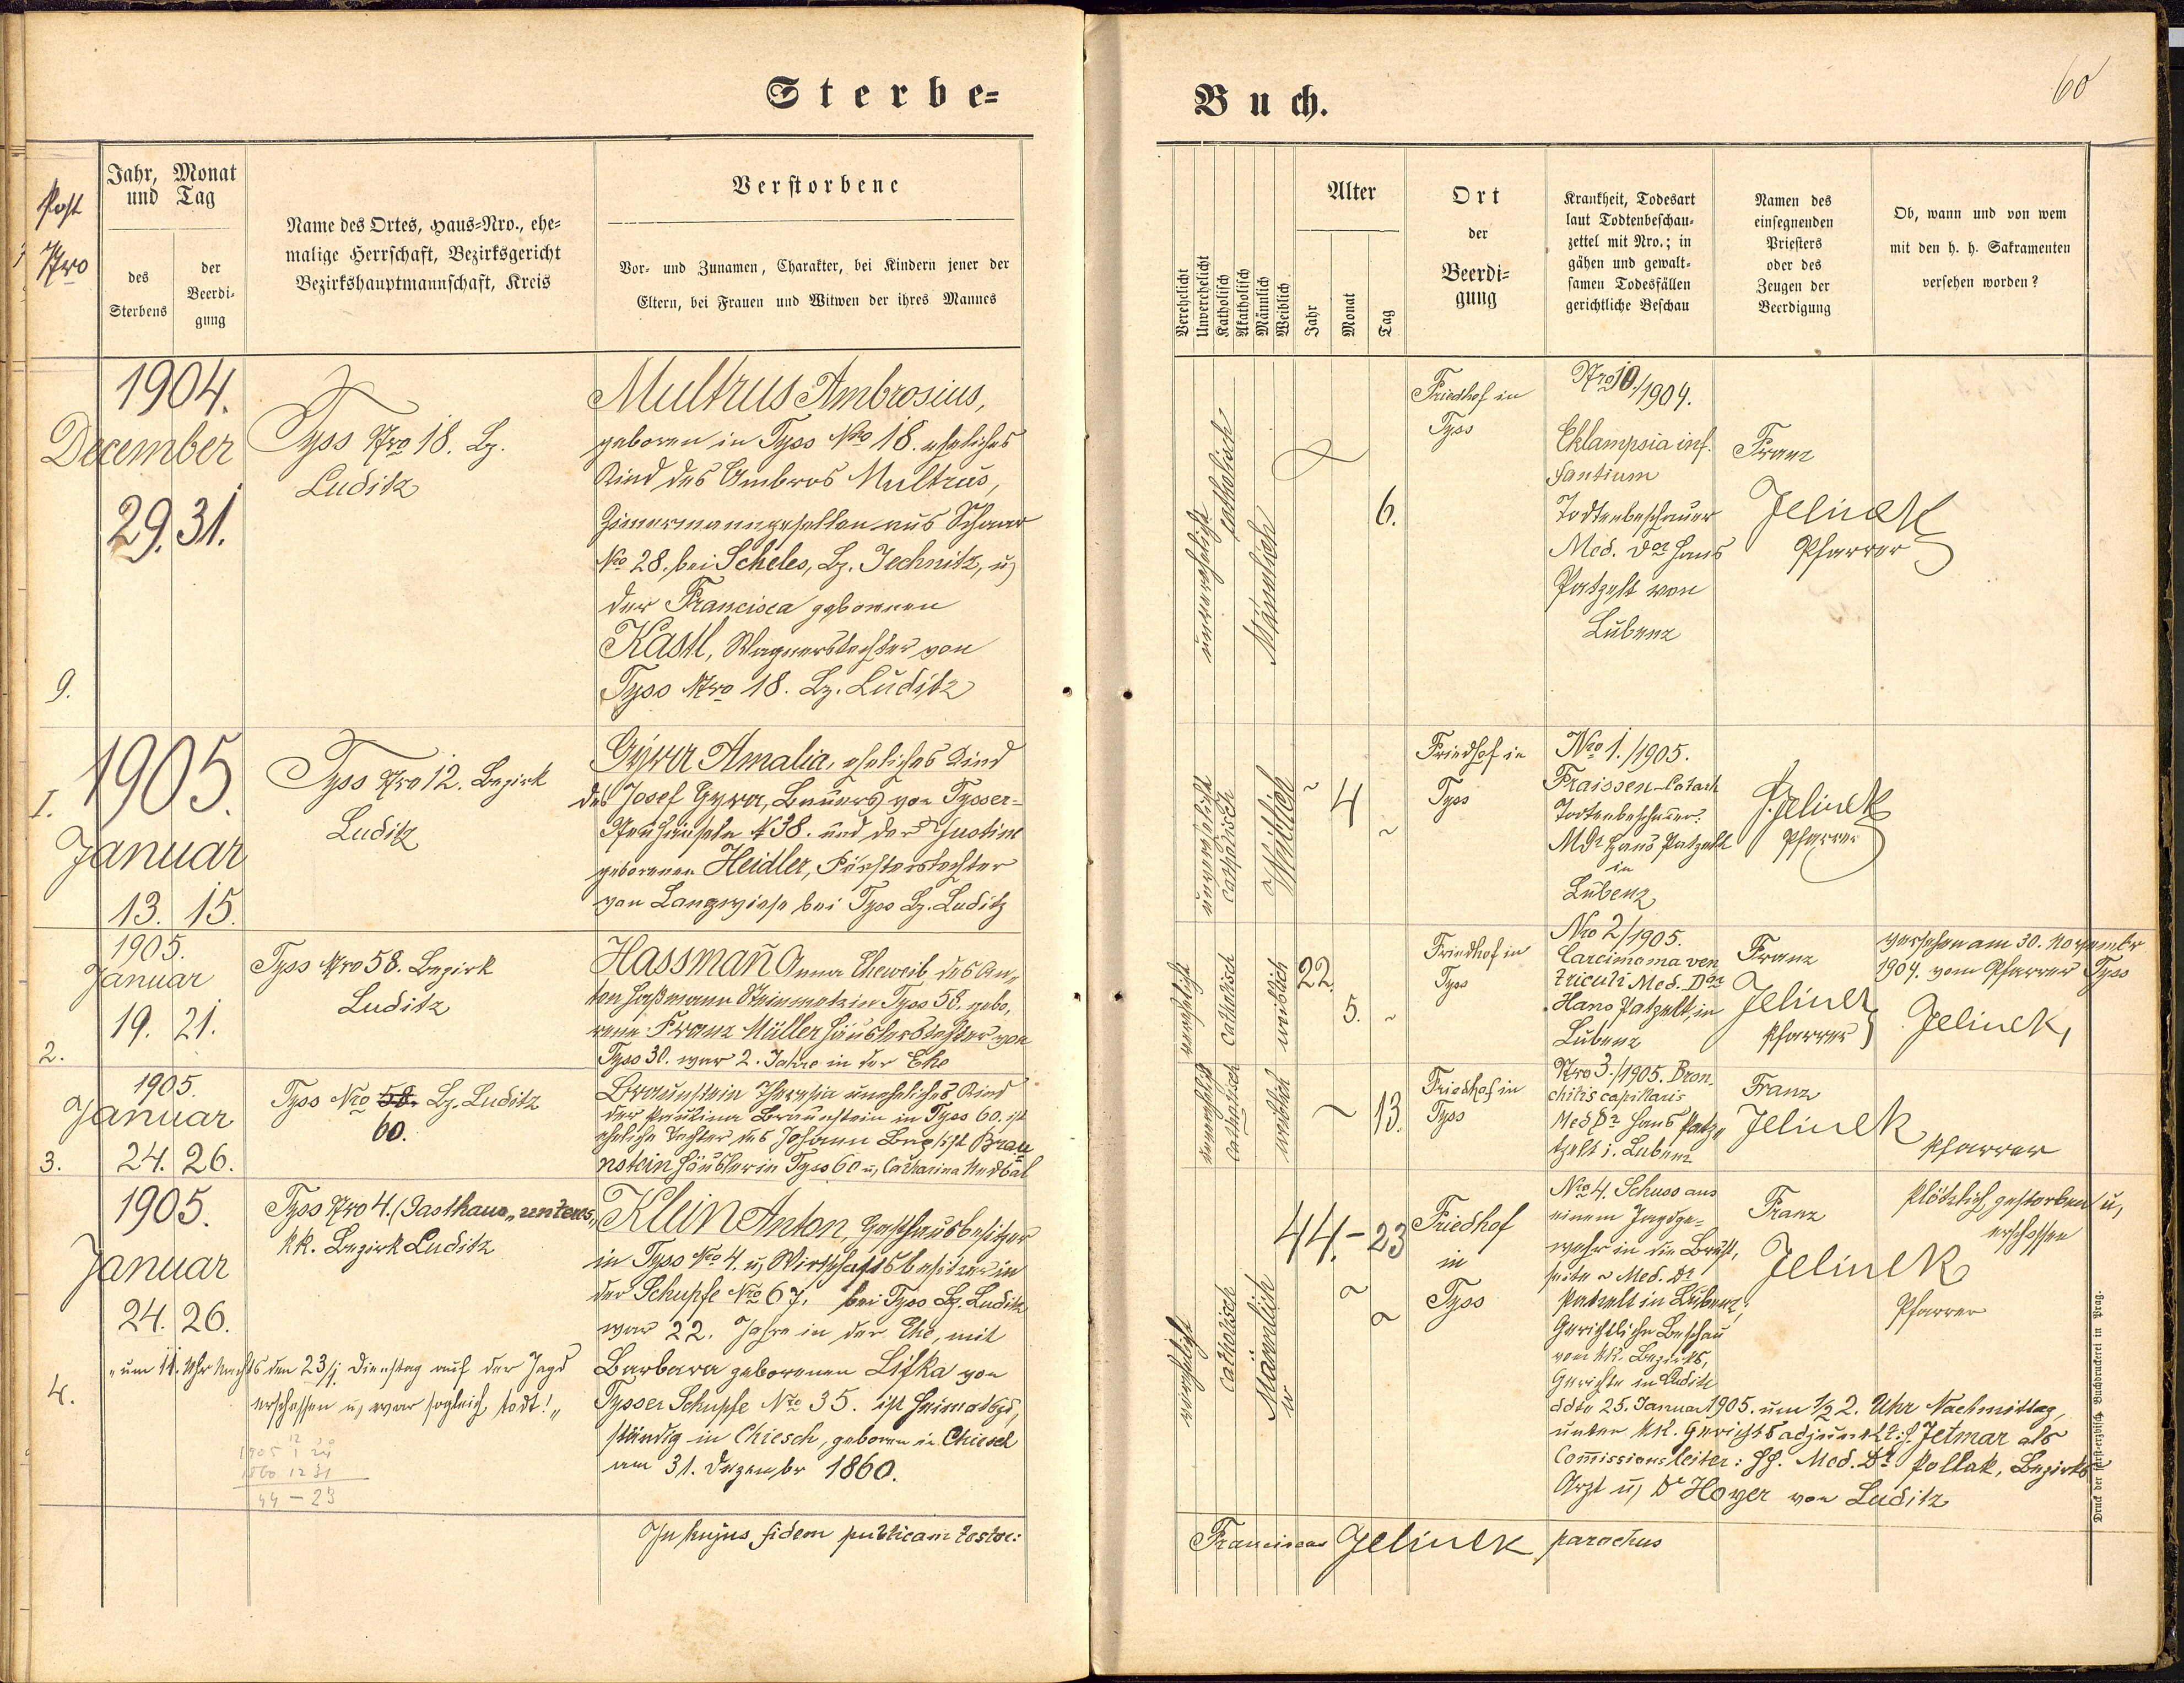 Sterbe=
Buch.
60
Post
Nro
Jahr, Monat
und Tag
des
Sterbens
der
Beerdi-
gung
Name des Ortes, Haus-Nro., ehe-
malige Herrschaft, Bezirksgericht
Bezirkshauptmannschaft, Kreis
Verstorbene
Vor- und Zunamen, Charakter, bei Kindern jener der
Eltern, bei Frauen und Witwen der ihres Mannes
Verehelicht
Unverehelicht
Katholisch
Akatholisch
Männlich
Weiblich
Alter
Jahr
Monat
Tag
Ort
der
Beerdi-
gung
Krankheit, Todesart
laut Todtenbeschau-
zettel mit Nro.; in
gähen und gewalt-
samen Todesfällen
gerichtliche Beschau
Namen des
einsegnenden
Priesters
oder des
Zeugen der
Beerdigung
Ob, wann und von wem
mit den h. h. Sakramenten
versehen worden?
9.
1904.
December
29. 31.
Tyss Nro 18. Bz.
Luditz
Multrus Ambrosius,
geboren in Tyss No 18. eheliches
Kind des Ambros Multrus,
Zimermanngesellen aus Schaar
No 28. bei Scheles, Bz. Jechnitz, u,
der Francisca geborenen
Kastl, Wagnerstochter von
Tyss Nro 18. Bz. Luditz
unverehelicht
catholisch
Männlich
6.
Friedhof in
Tyss
Nro 10./1904.
Eklampsia inf.
fantium
Todtenbeschauer
Med. Dor Hans
Patzelt von
Lubenz
Franz
Jelinek
Pfarrer
I.
1905.
Januar
13. 15.
Tyss Nro 12. Bezirk
Luditz
Gyra Amalia, eheliches Kind
des Josef Gyra, Bauers von Tysser-
Neuhäuseln N 38. und der Justine
geborenen Heidler, Försterstochter
von Langwiese bei Tyss Bz. Luditz
unverehelicht
catholisch
Weiblich
~ 4 ~
Friedhof in
Tyss
Nro 1./1905.
Fraissen-Catarh
Todtenbeschauer.
MDr Hans Patzelt
in
Lubenz
F. Jelinek
Pfarrer
2.
1905.
Januar
19. 21.
Tyss Nro 58. Bezirk
Luditz
Hassman̄ Anna Eheweib des An„
ton Haßmann Steinmetz in Tyss 58. gebo,
rene Franz Müller Häuslerstochter von
Tyss 30. war 2. Jahre in der Ehe
verehelicht
Catholisch
weiblich
22. 5. ~
Friedhof in
Tyss
Nro 2/1905.
Carcimoma ven
triculi Med. Dor
Hans Patzelt, in
Lubenz
Franz
Jelinek
Pfarrer
versehen am 30. Novembr
1904. vom Pfarrer Tyss
Jelinek,
3.
1905.
Januar
24. 26.
Tyss Nro 58. Bz. Luditz
60.
Braunstein Theresia uneheliches Kind
der Paulina Braunstein in Tyss 60. ist
eheliche Tochter des Johann Brau
nstein Häusler in Tyss 60 u, Catharina Nedbal
unverehelicht
Catholisch
weiblich
~ 13.
Friedhof in
Tyss
Nro 3./1905. Bron-
chitis capillaris
Med Dr Hans Patz„
tzelt i. Lubenz
Franz
Jelinek
Pfarrer
4.
1905.
Januar
24. 26.
Tyss Nro 4. (Gasthaus „unteres„
kk. Bezirk Luditz
„um 11. Uhr Nachts den 23/1 Dienstag auf der Jagd
erschossen u, war sogleich todt!„
1905 1 24
1860 12 31
44 – 23
Klein Anton, Gasthausbesitzer
in Tyss Nro 4. u, Wirtschaftsbesitzer in
der Schupfe Nro 67. bei Tyss Bz. Luditz
war 22. Jahre in der Ehe, mit
Barbara geborenen Lifka von
Tysser Schupfe Nro 35. ist heimatzu„
ständig in Chiesch, geboren in Chiesch
am 31. Dezember 1860.
verehelicht
Catholisch
Männlich
44.- 23
Friedhof
in
Tyss
Nro 4. Schuss aus
einem Jagdge-
wehr in die Brust,
seite ~ Med. Dr
Patzelt in Lubenz,
Gerichtliche Beschau
vom kk. Bezirks,
Gerichte in Luditz
ddto 25. Januar 1905. um 1/2 2. Uhr Nachmittag,
unter kk. Gerichtsadjunkt: H. Jetmar als
Com̄issionsleiter: HH. Med. Dr Pollak, Bezirks
Arzt u, Dr Hoyer von Luditz
Franz
Jelinek
Pfarrer
Plötzlich gestorben u,
erschossen
In hujus fidem publicam testor:
Franciscus Jelinek, parochus
Druck der fürst-erzbisch. Buchdruckerei in Prag.